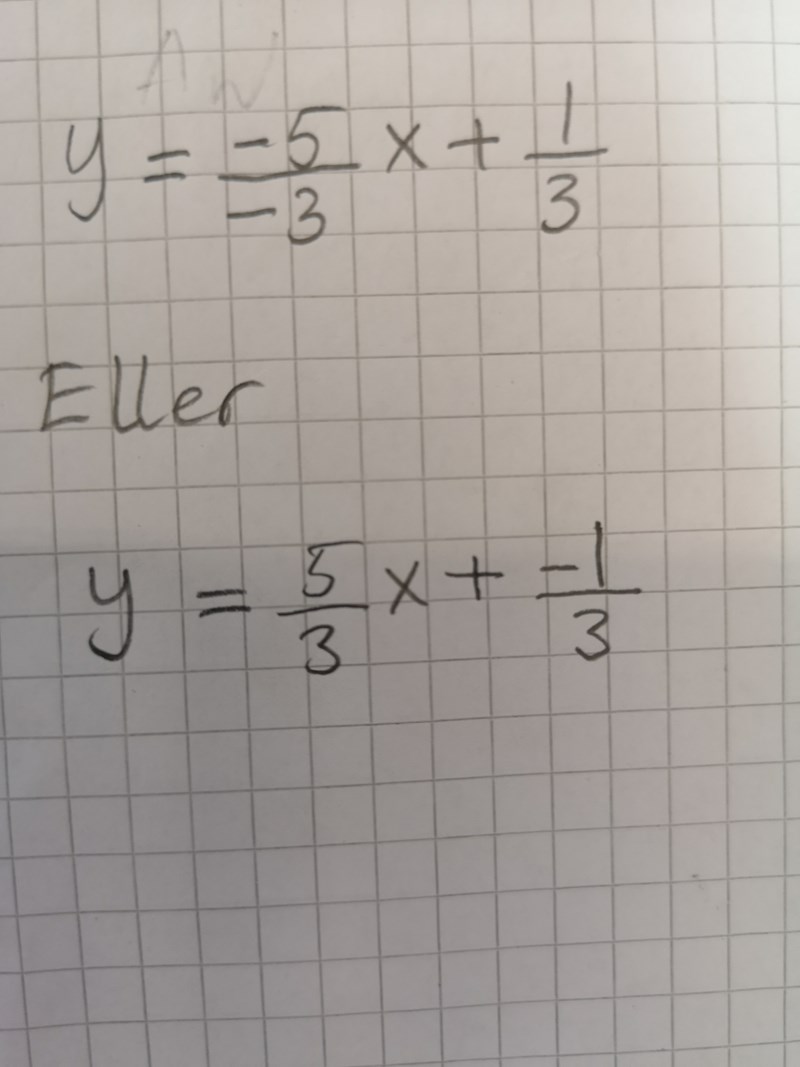 y = -5/-3 x + 1/3
Eller
y = 5/3 x + -1/3